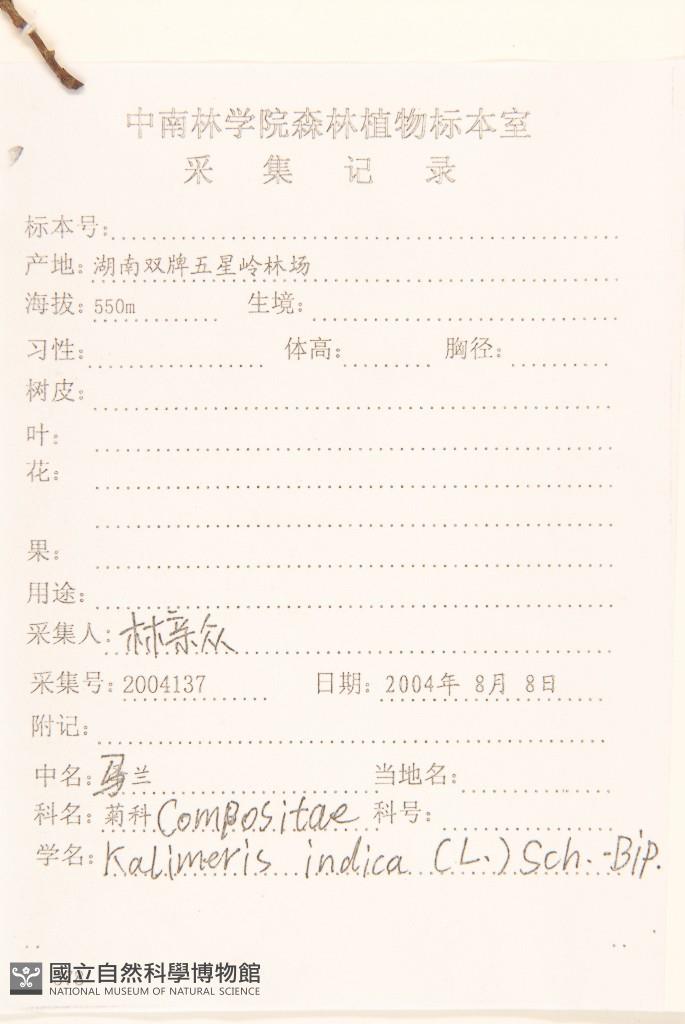 中南林学院森林植物标本室
采集记录
标本号:
产地: 湖南双牌五星岭林场
海拔: 550m 生境:
习性: 体高: 胸径:
树皮:
叶:
花:
果:
用途:
采集人: 林亲众
采集号: 2004137 日期: 2004年 8月 8日
附记:
中名: 马兰 当地名:
科名: 菊科 Compositae 科号:
学名: Kalimeris indica (L.) Sch.-Bip.
國立自然科學博物館
NATIONAL MUSEUM OF NATURAL SCIENCE